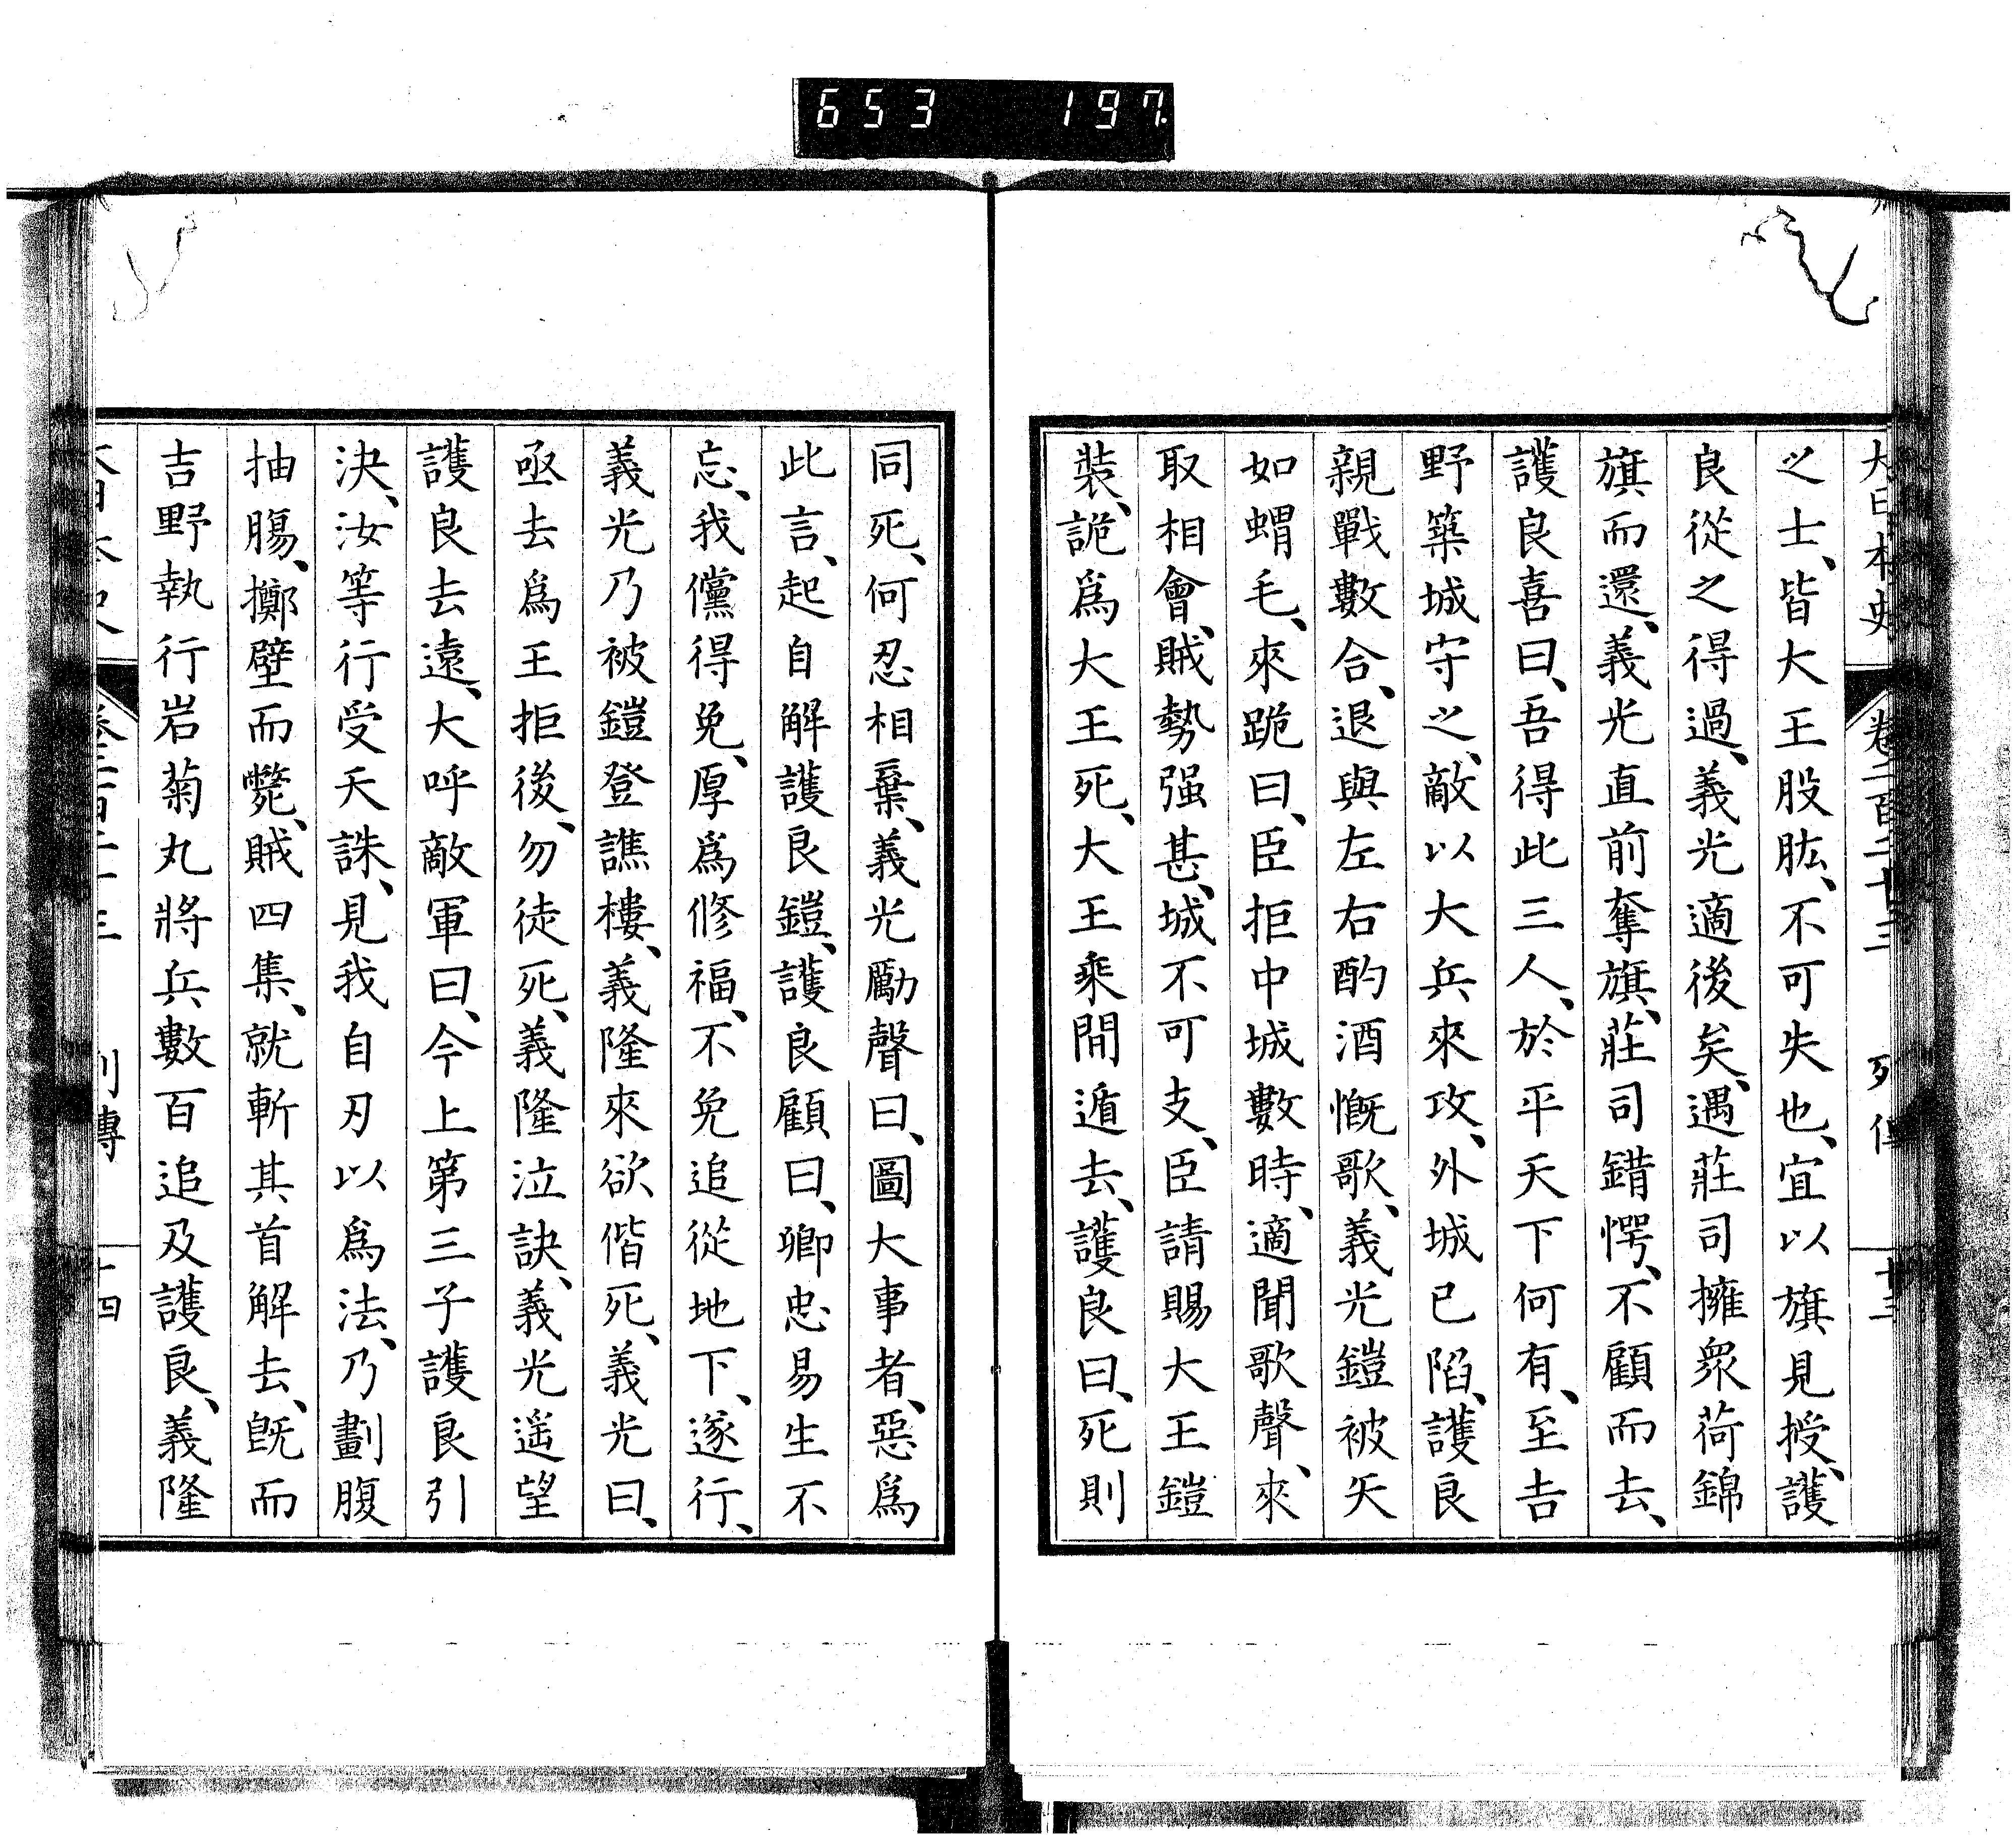 653 197.
大日本史 卷二百二十三 列傳 十三
之士、皆大王股肱、不可失也、宜以旗見授、護
良從之得過、義光適後矣、遇莊司擁衆荷錦
旗而還、義光直前奪旗、莊司錯愕、不顧而去、
護良喜曰、吾得此三人、於平天下何有、至吉
野築城守之、敵以大兵來攻、外城已陷、護良
親戰數合、退與左右酌酒慨歌、義光鎧被矢
如蝟毛、來跪曰、臣拒中城數時、適聞歌聲、來
取相會、賊勢强甚、城不可支、臣請賜大王鎧
裝、詭爲大王死、大王乘間遁去、護良曰、死則
同死、何忍相棄、義光勵聲曰、圖大事者、惡爲
此言、起自解護良鎧、護良顧曰、卿忠易生不
忘、我儻得免、厚爲修福、不免追從地下、遂行、
義光乃被鎧登譙樓、義隆來欲偕死、義光曰、
亟去爲王拒後、勿徒死、義隆泣訣、義光遥望
護良去遠、大呼敵軍曰、今上第三子護良引
決、汝等行受天誅、見我自刃以爲法、乃劃腹
抽膓、擲壁而斃、賊四集、就斬其首解去、旣而
吉野執行岩菊丸將兵數百追及護良、義隆
大日本史 卷二百二十三 列傳 十四